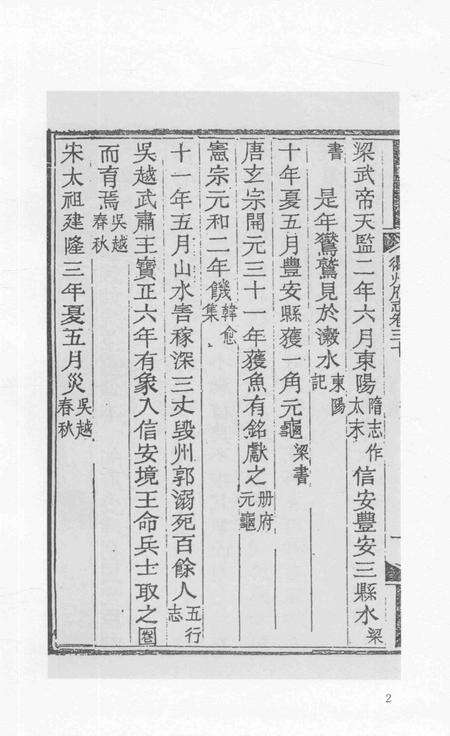 衢州府志卷三十
梁武帝天監二年六月東陽隋志作太末信安豐安三縣水梁
書 是年鸑鷟見於瀫水東陽記
十年夏五月豐安縣獲一角元龜梁書
唐玄宗開元三十一年獲魚有銘獻之册府元龜
憲宗元和二年饑韓愈集
十一年五月山水害稼深三丈毀州郭溺死百餘人五行志
吳越武肅王寶正六年有象入信安境王命兵士取之圈
而育焉吳越春秋
宋太祖建隆三年夏五月災吳越春秋
2